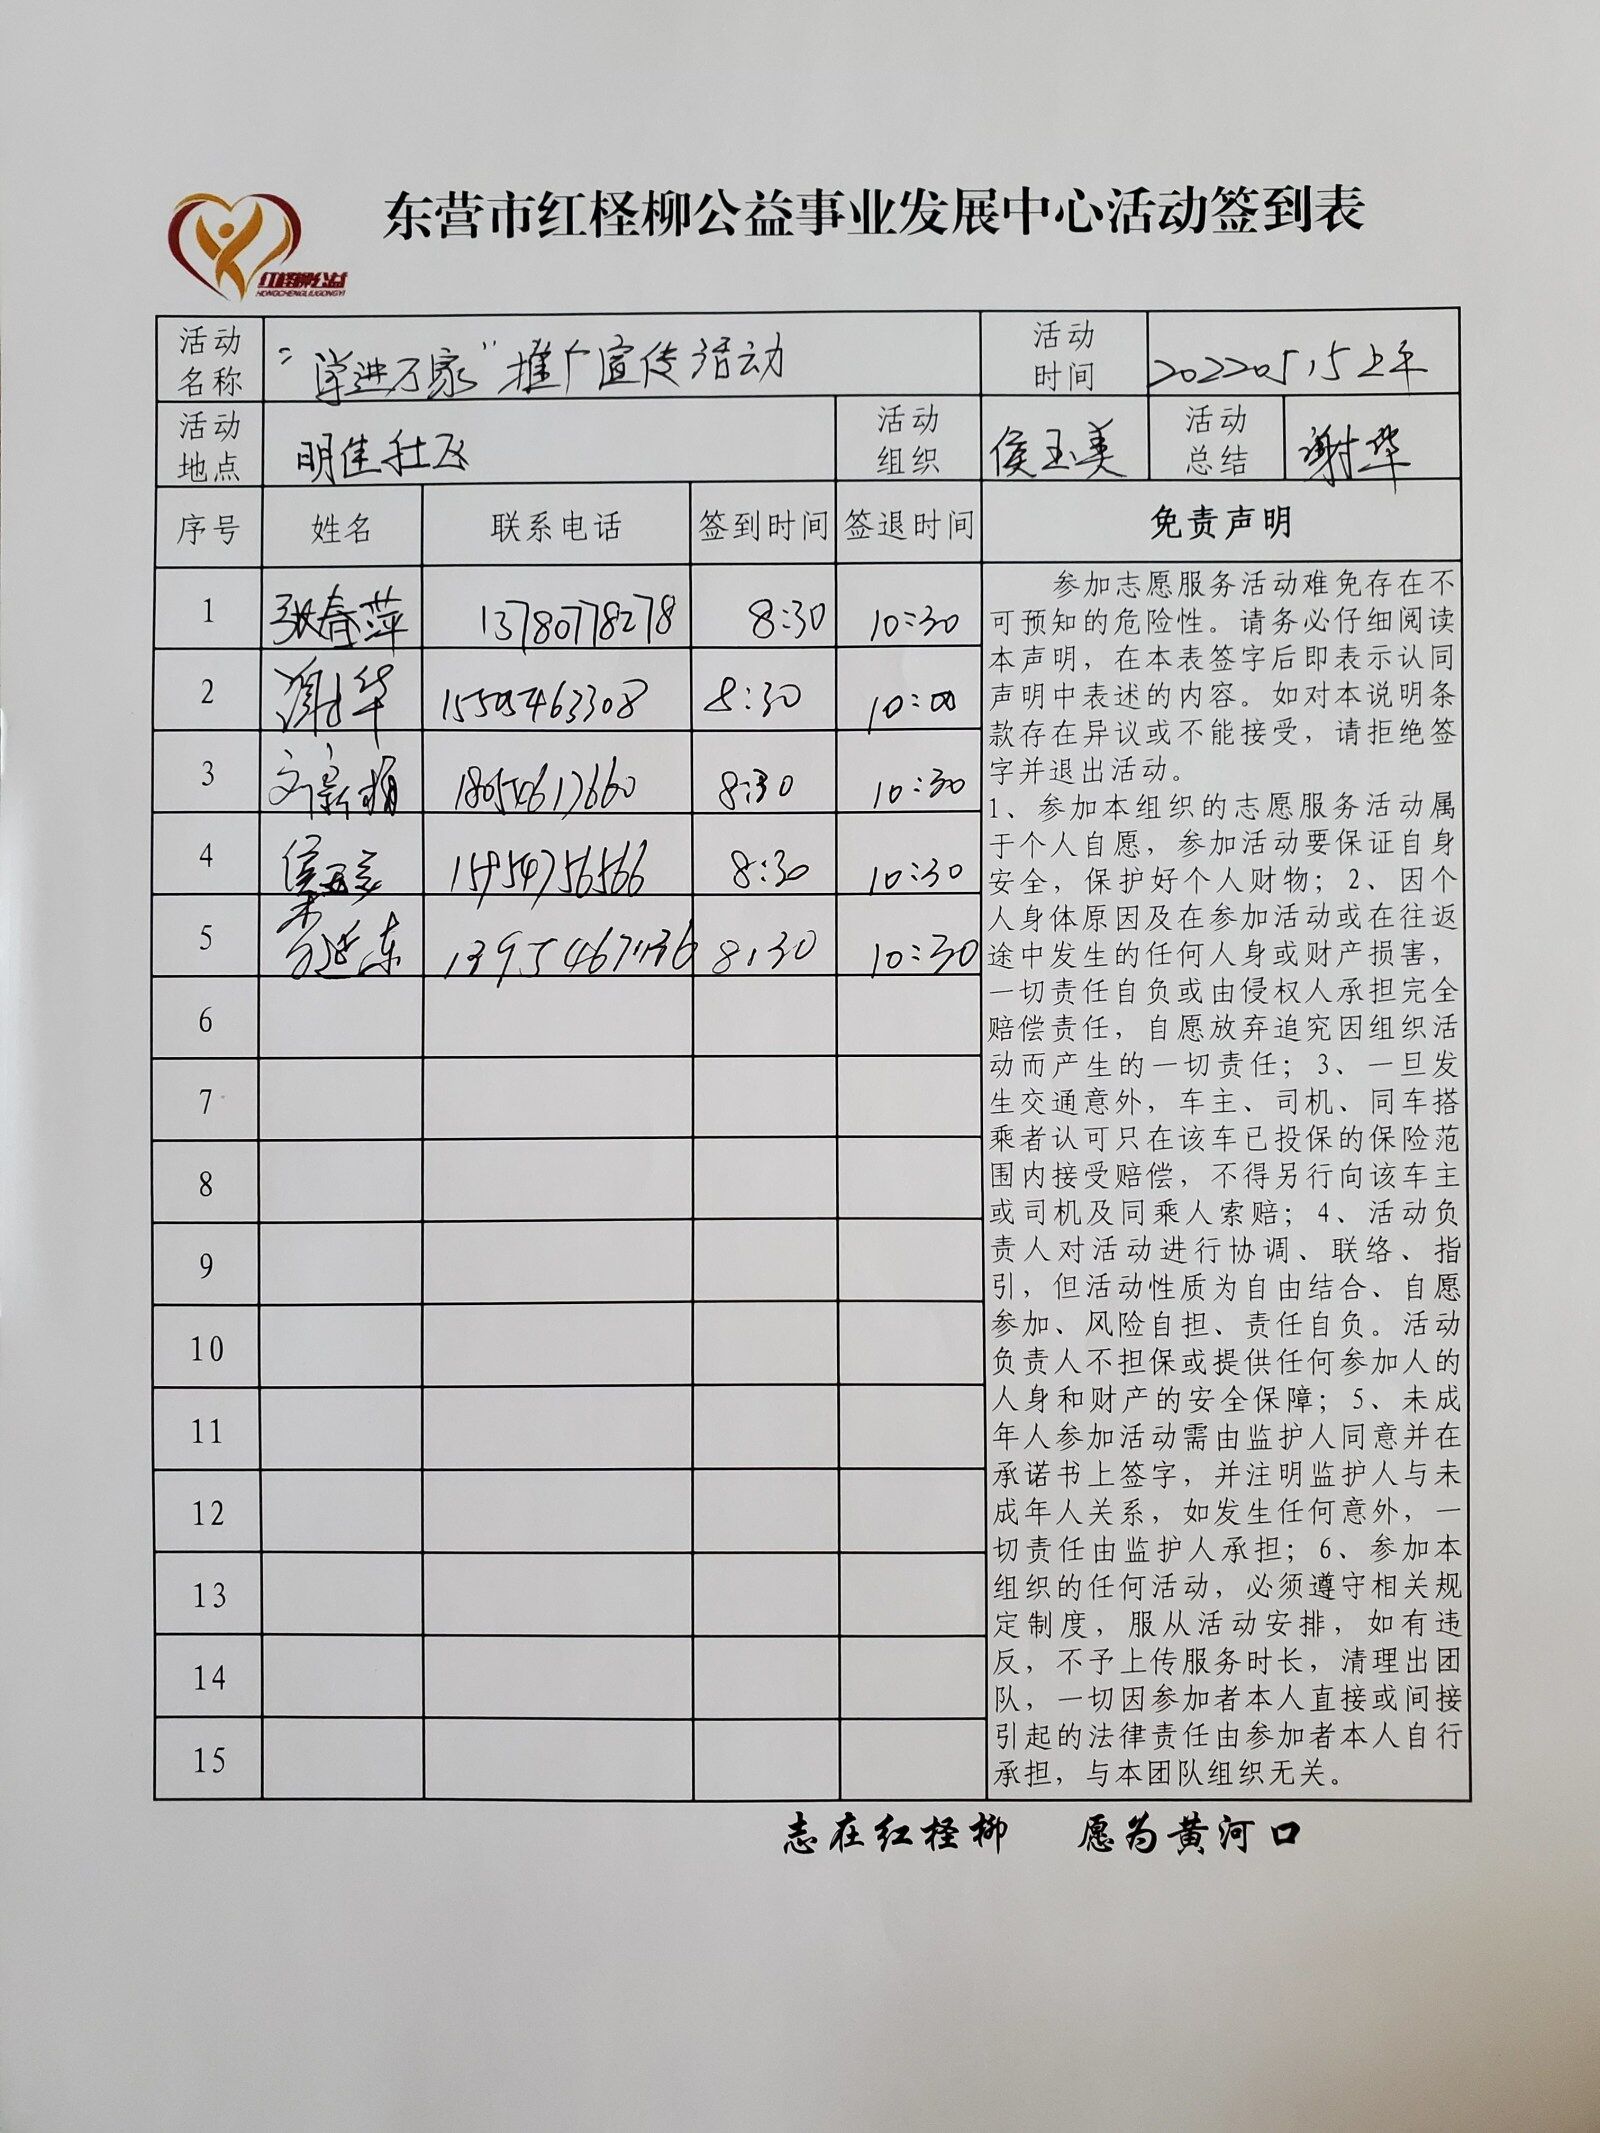 东营市红柽柳公益事业发展中心活动签到表
红柽柳公益
HONGCHENGLIUGONGYI
活动名称 进万家"推广宣传活动 活动时间 20220515上午
活动地点 明佳社区 活动组织 侯玉美 活动总结 谢华
序号 姓名 联系电话 签到时间 签退时间 免责声明
1 张春萍 13780778278 8:30 10:30
2 谢华 15505463308 8:30 10:00
3 18654617660 8:30 10:30
4 15954756566 8:30 10:30
5 8:30 10:30
6
7
8
9
10
11
12
13
14
15
参加志愿服务活动难免存在不
可预知的危险性。请务必仔细阅读
本声明，在本表签字后即表示认同
声明中表述的内容。如对本说明条
款存在异议或不能接受，请拒绝签
字并退出活动。
1、参加本组织的志愿服务活动属
于个人自愿，参加活动要保证自身
安全，保护好个人财物；2、因个
人身体原因及在参加活动或在往返
途中发生的任何人身或财产损害，
一切责任自负或由侵权人承担完全
赔偿责任，自愿放弃追究因组织活
动而产生的一切责任；3、一旦发
生交通意外，车主、司机、同车搭
乘者认可只在该车已投保的保险范
围内接受赔偿，不得另行向该车主
或司机及同乘人索赔；4、活动负
责人对活动进行协调、联络、指
引，但活动性质为自由结合、自愿
参加、风险自担、责任自负。活动
负责人不担保或提供任何参加人的
人身和财产的安全保障；5、未成
年人参加活动需由监护人同意并在
承诺书上签字，并注明监护人与未
成年人关系，如发生任何意外，一
切责任由监护人承担；6、参加本
组织的任何活动，必须遵守相关规
定制度，服从活动安排，如有违
反，不予上传服务时长，清理出团
队，一切因参加者本人直接或间接
引起的法律责任由参加者本人自行
承担，与本团队组织无关。
志在红柽柳 愿为黄河口